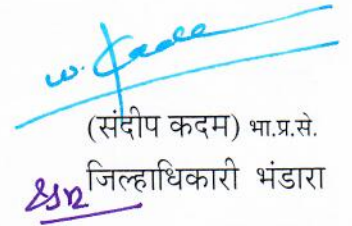 (संदीप कदम) भा.प्र.से.
जिल्हाधिकारी भंडारा